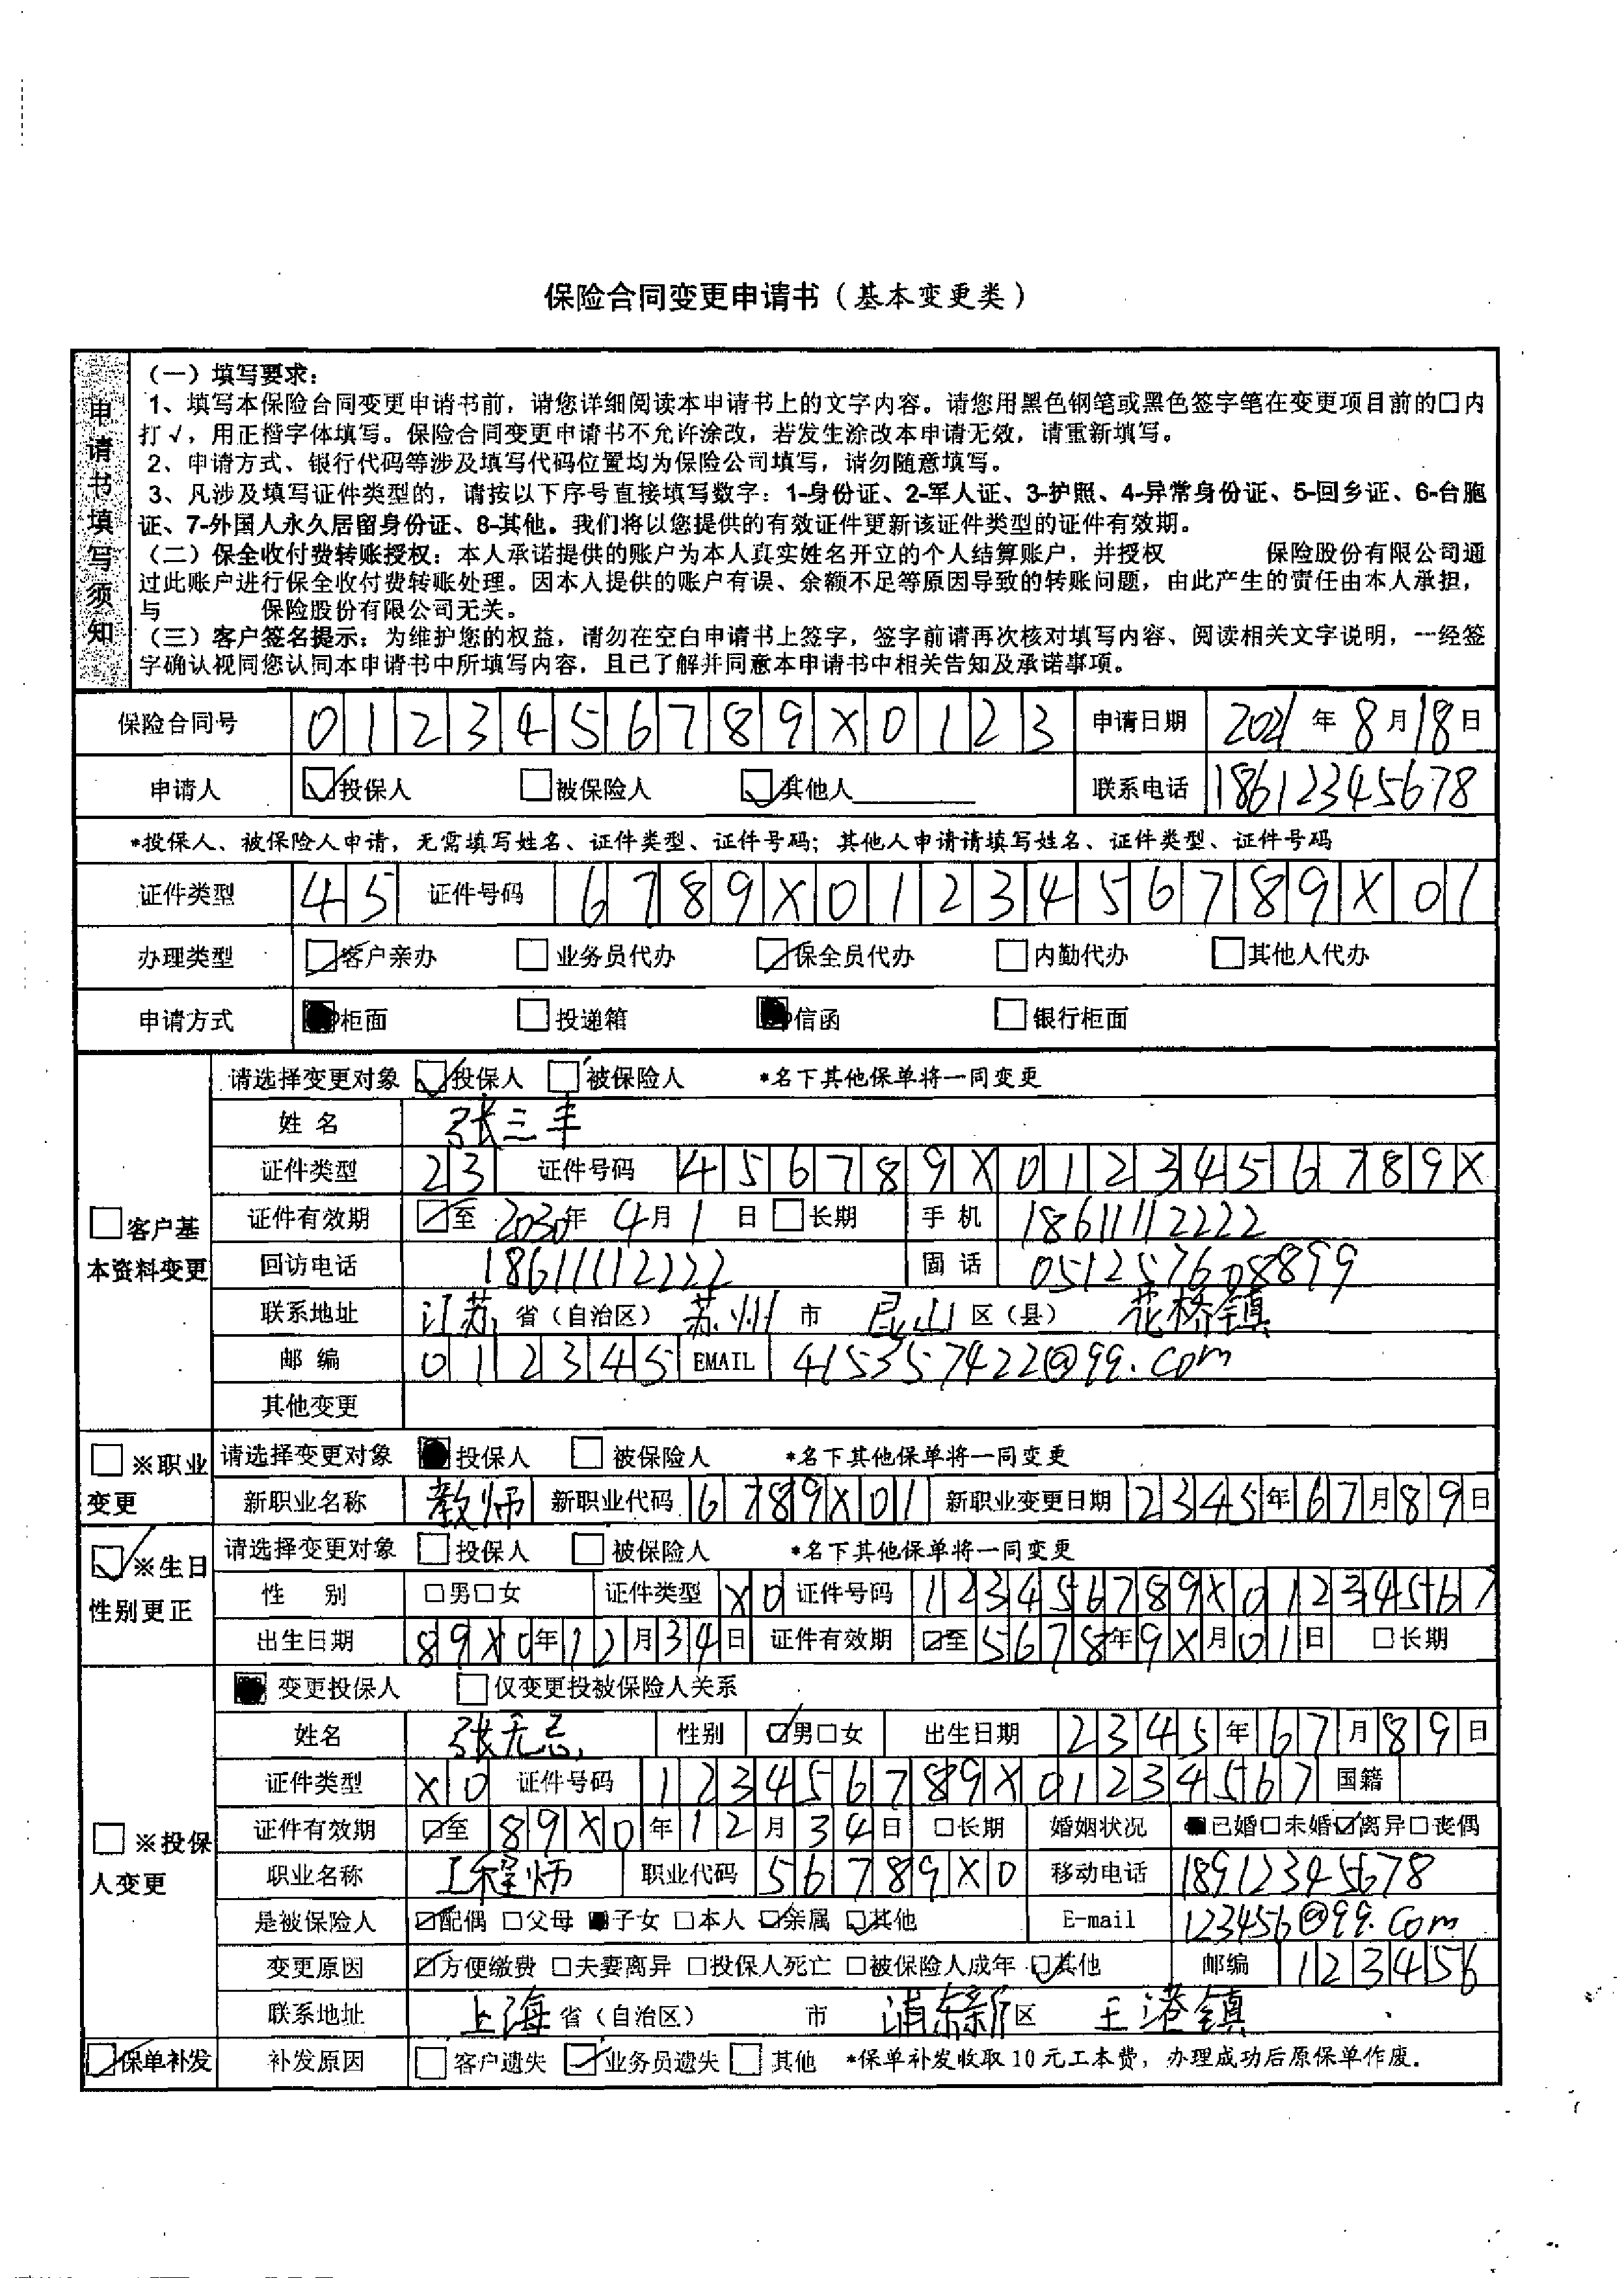 保险合同变更申请书（基本变更类）
申请书填写须知
（一）填写要求：
1、填写本保险合同变更申请书前，请您详细阅读本申请书上的文字内容。请您用黑色钢笔或黑色签字笔在变更项目前的□内
打√，用正楷字体填写。保险合同变更申请书不允许涂改，若发生涂改本申请无效，请重新填写。
2、申请方式、银行代码等涉及填写代码位置均为保险公司填写，请勿随意填写。
3、凡涉及填写证件类型的，请按以下序号直接填写数字：1-身份证、2-军人证、3-护照、4-异常身份证、5-回乡证、6-台胞
证、7-外国人永久居留身份证、8-其他。我们将以您提供的有效证件更新该证件类型的证件有效期。
（二）保全收付费转账授权：本人承诺提供的账户为本人真实姓名开立的个人结算账户，并授权 保险股份有限公司通
过此账户进行保全收付费转账处理。因本人提供的账户有误、余额不足等原因导致的转账问题，由此产生的责任由本人承担，
与 保险股份有限公司无关。
（三）客户签名提示：为维护您的权益，请勿在空白申请书上签字，签字前请再次核对填写内容、阅读相关文字说明，一经签
字确认视同您认同本申请书中所填写内容，且已了解并同意本申请书中相关告知及承诺事项。
保险合同号 0123456789X0123 申请日期 2021年8月18日
申请人 ☑投保人 □被保险人 ☑其他人 联系电话 18612345678
*投保人、被保险人申请，无需填写姓名、证件类型、证件号码；其他人申请请填写姓名、证件类型、证件号码
证件类型 45 证件号码 6789X0123456789X01
办理类型 ☑客户亲办 □业务员代办 ☑保全员代办 □内勤代办 □其他人代办
申请方式 ■柜面 □投递箱 ■信函 □银行柜面
□客户基本资料变更
请选择变更对象 ☑投保人 □被保险人 *名下其他保单将一同变更
姓名 张三丰
证件类型 23 证件号码 456789X0123456789X
证件有效期 ☑至 2030年4月1日 □长期 手机 18611112222
回访电话 18611112222 固话 051257608899
联系地址 江苏省（自治区） 苏州市 昆山区（县） 花桥镇
邮编 012345 EMAIL 415357422@qq.com
其他变更
□※职业变更
请选择变更对象 ■投保人 □被保险人 *名下其他保单将一同变更
新职业名称 教师 新职业代码 6789X01 新职业变更日期 2345年67月89日
☑※生日性别更正
请选择变更对象 □投保人 □被保险人 *名下其他保单将一同变更
性别 □男□女 证件类型 X0 证件号码 123456789X01234567
出生日期 89X0年12月34日 证件有效期 ☑至 5678年9X月01日 □长期
□※投保人变更
■变更投保人 □仅变更投被保险人关系
姓名 张无忌 性别 ☑男□女 出生日期 2345年67月89日
证件类型 X0 证件号码 123456789X01234567 国籍
证件有效期 ☑至 89X0年12月34日 □长期 婚姻状况 ■已婚□未婚☑离异□丧偶
职业名称 工程师 职业代码 56789X0 移动电话 18912345678
是被保险人 ☑配偶 □父母 ■子女 □本人 ☑亲属 ☑其他 E-mail 123456@qq.com
变更原因 ☑方便缴费 □夫妻离异 □投保人死亡 □被保险人成年 ☑其他 邮编 123456
联系地址 上海省（自治区） 市 浦东新区 王港镇
☑保单补发 补发原因 □客户遗失 ☑业务员遗失 □其他 *保单补发收取10元工本费，办理成功后原保单作废。